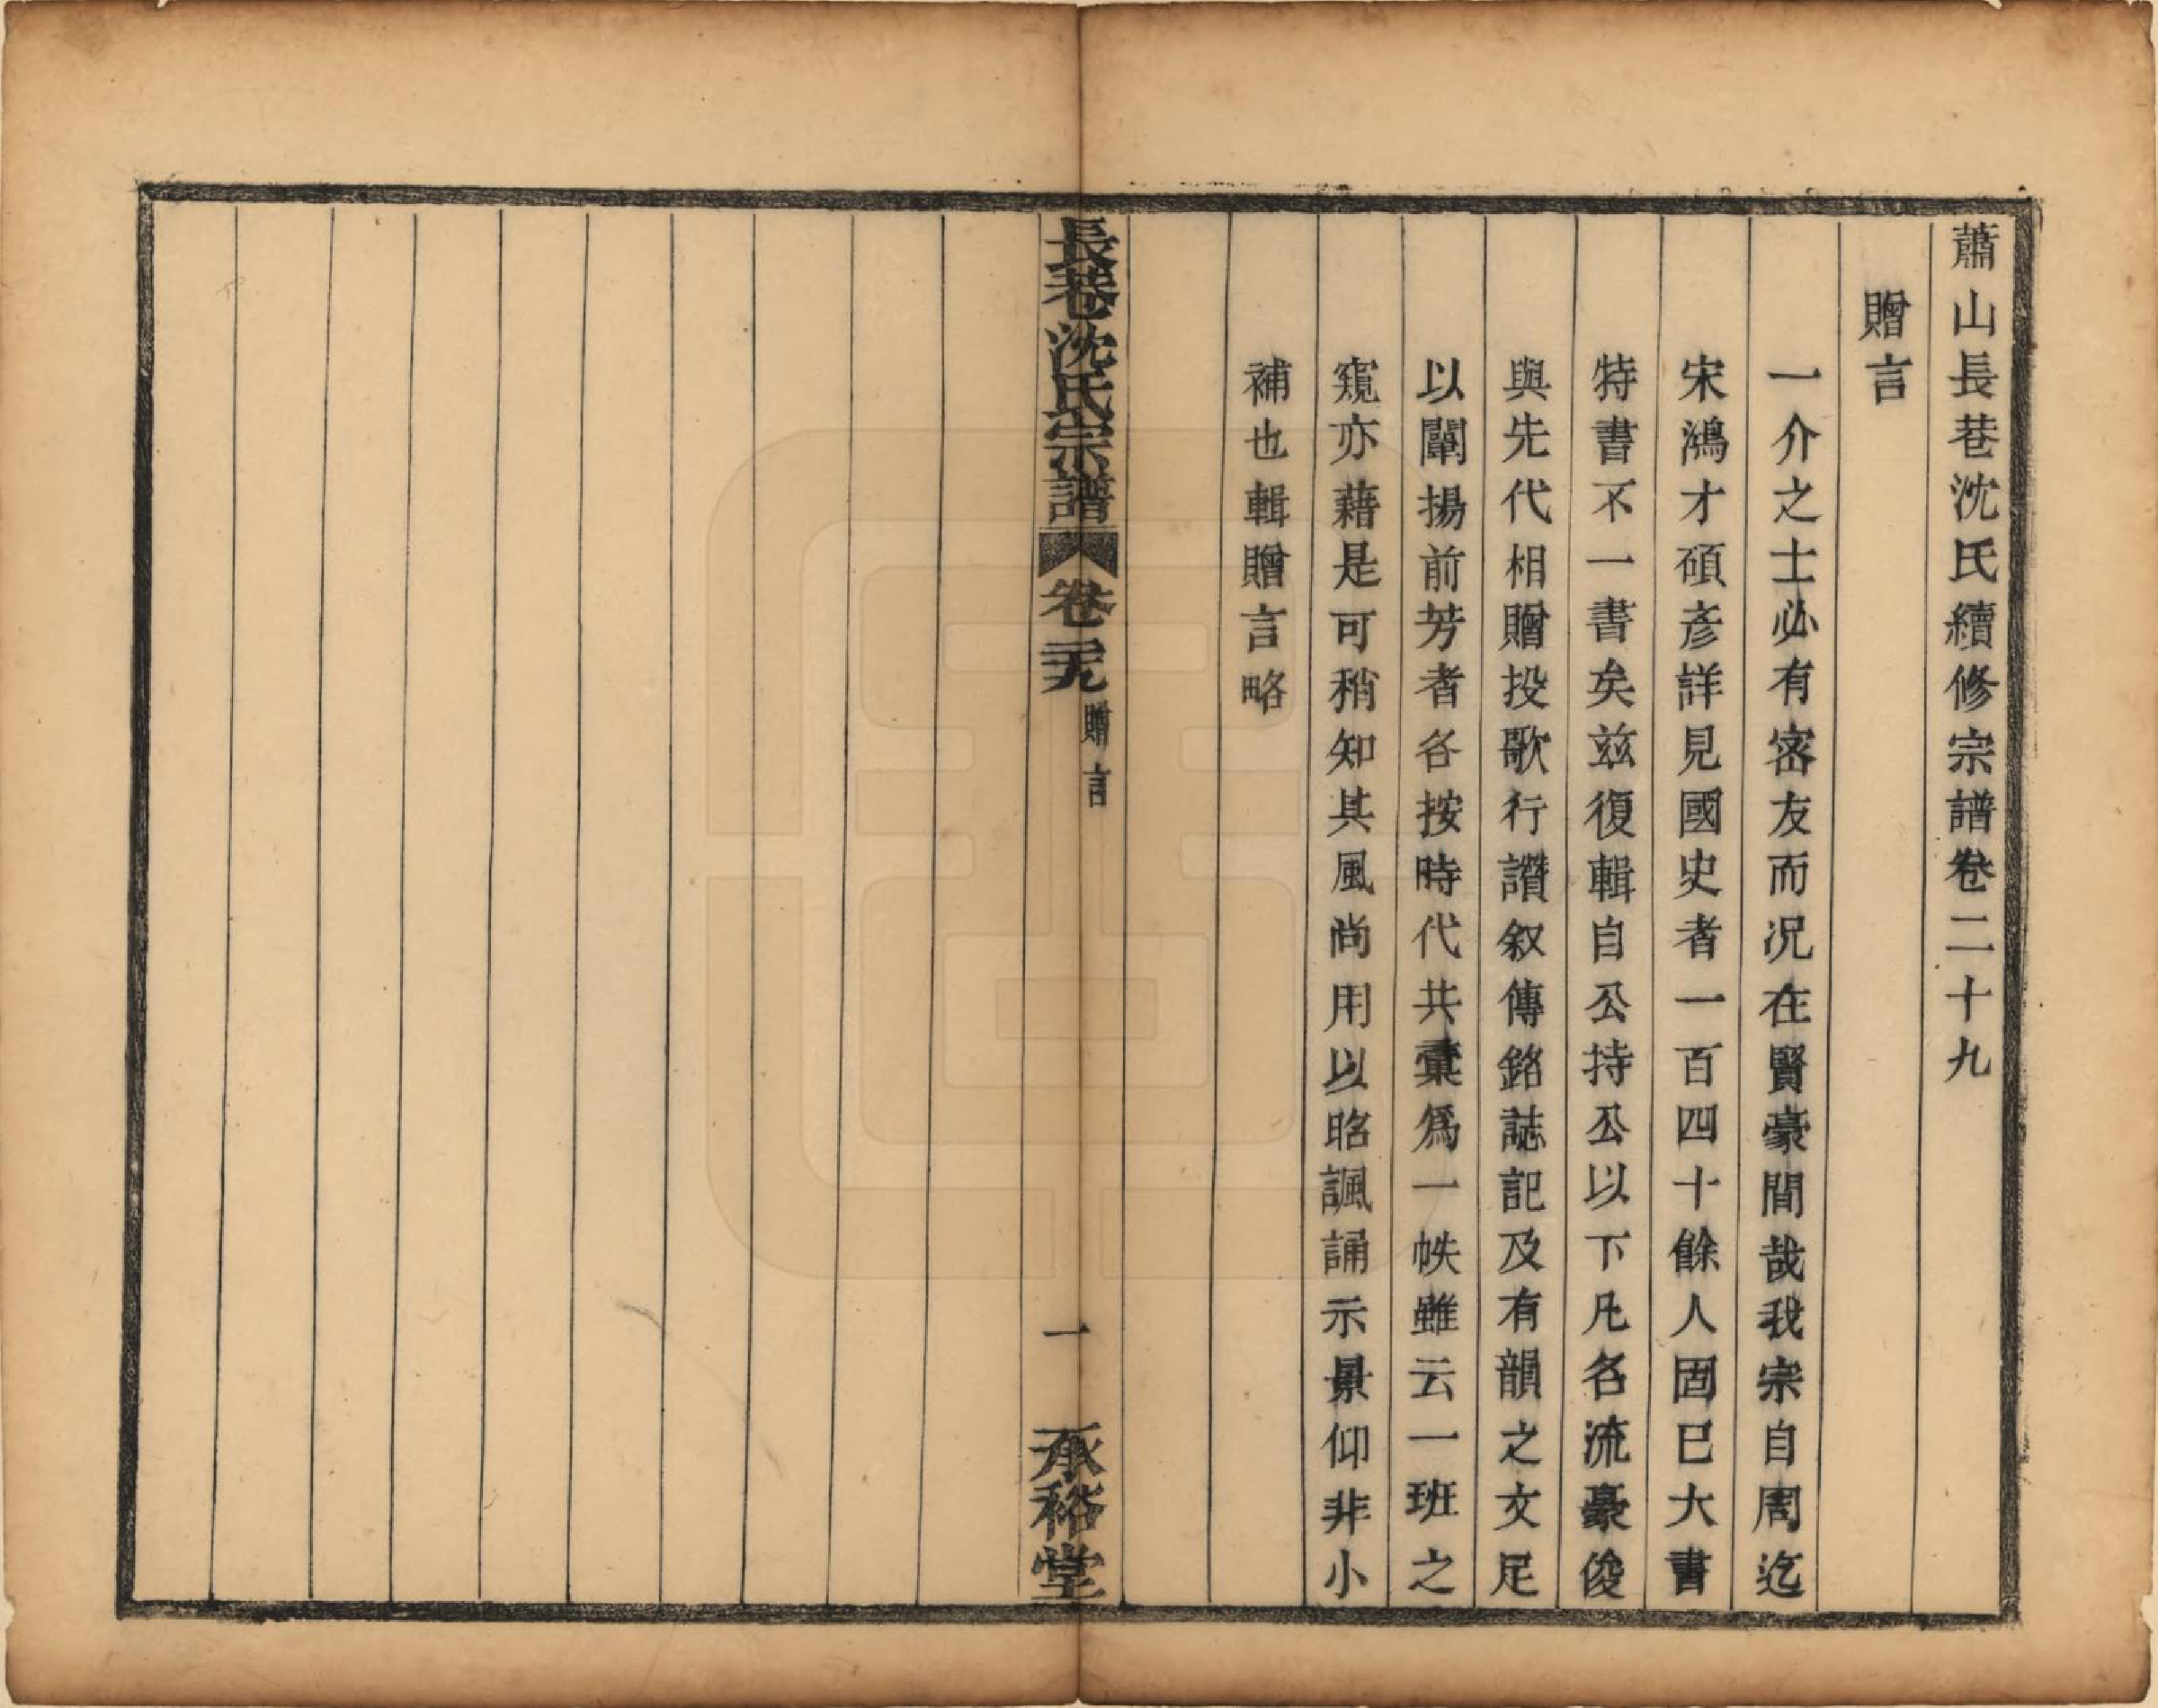 蕭山長巷沈氏續修宗譜卷二十九
贈言
一介之士必有密友而况在賢豪間哉我宗自周迄
宋鴻才碩彥詳見國史者一百四十餘人固已大書
特書不一書矣兹復輯自公持公以下凡名流豪俊
與先代相贈投歌行讚叙傳銘誌記及有韻之文足
以闡揚前芳者各按時代共彙爲一帙雖云一班之
窺亦藉是可稍知其風尚用以昭諷誦示景仰非小
補也輯贈言略
長巷沈氏宗譜
卷二十九
贈言
一
承裕堂